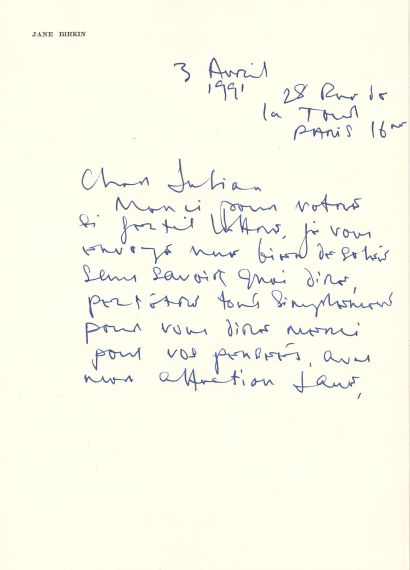 JANE BIRKIN
3 Avril
1991
28 Rue de
la Tour
PARIS 16
Cher Julian
Merci pour votre
si gentil lettre, je vous
envoye
sens savoir quoi dire,
peut être tous simplement
pour vous dire merci
pour vos pensées, avec
mon affection Jane,